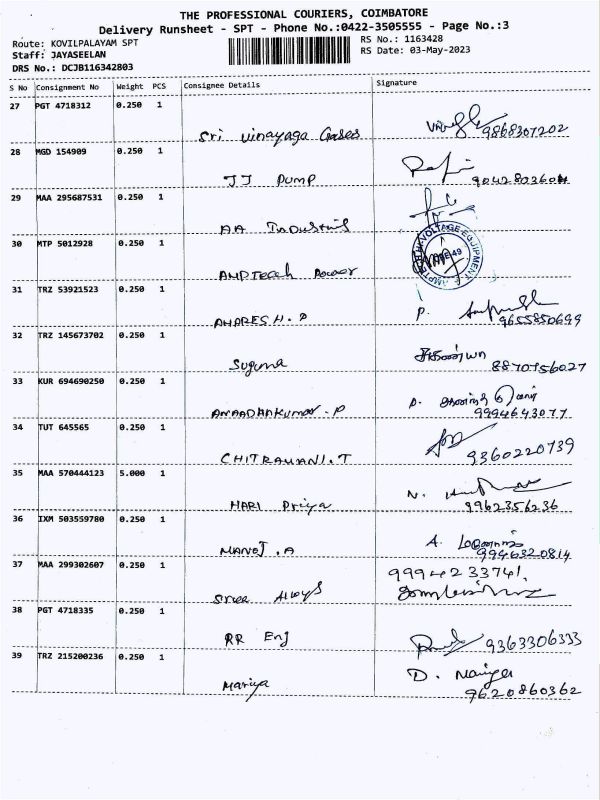 THE PROFESSIONAL COURIERS, COIMBATORE
Delivery Runsheet - SPT - Phone No.:0422-3505555 - Page No.:3
Route: KOVILPALAYAM SPT
RS No.: 1163428
Staff: JAYASEELAN
RS Date: 03-May-2023
DRS No.: DCJB116342803
S No Consignment No Weight PCS Consignee Details Signature
27 PGT 4718312 0.250 1
Sri Vinayaga Gases 9868307202
28 MGD 154909 0.250 1
JJ PUMP
29 MAA 295687531 0.250 1
AA Industries
30 MTP 5012928 0.250 1
AMPTECH Power
31 TRZ 53921523 0.250 1
P. 9655850699
32 TRZ 145673702 0.250 1
Suguna 8870756027
33 KUR 694690250 0.250 1
P. 9994643077
34 TUT 645565 0.250 1
CHITRAMANI.T 9360220739
35 MAA 570444123 5.000 1
HARI Priya N. 9962356236
36 IXM 503559780 0.250 1
MANOJ.A A. 9946320814
37 MAA 299302607 0.250 1
9994233741.
Sree Alloys
38 PGT 4718335 0.250 1
RR Eng 9363306333
39 TRZ 215200236 0.250 1
Mariya D. 9620860362